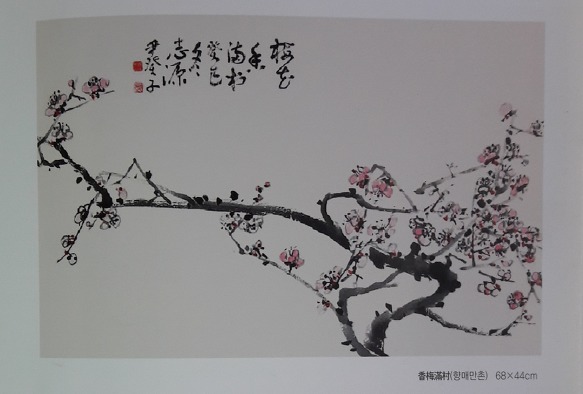 梅花
香
滿村
癸巳
冬
志源
尹 子
香梅滿村(향매만촌) 68×44cm